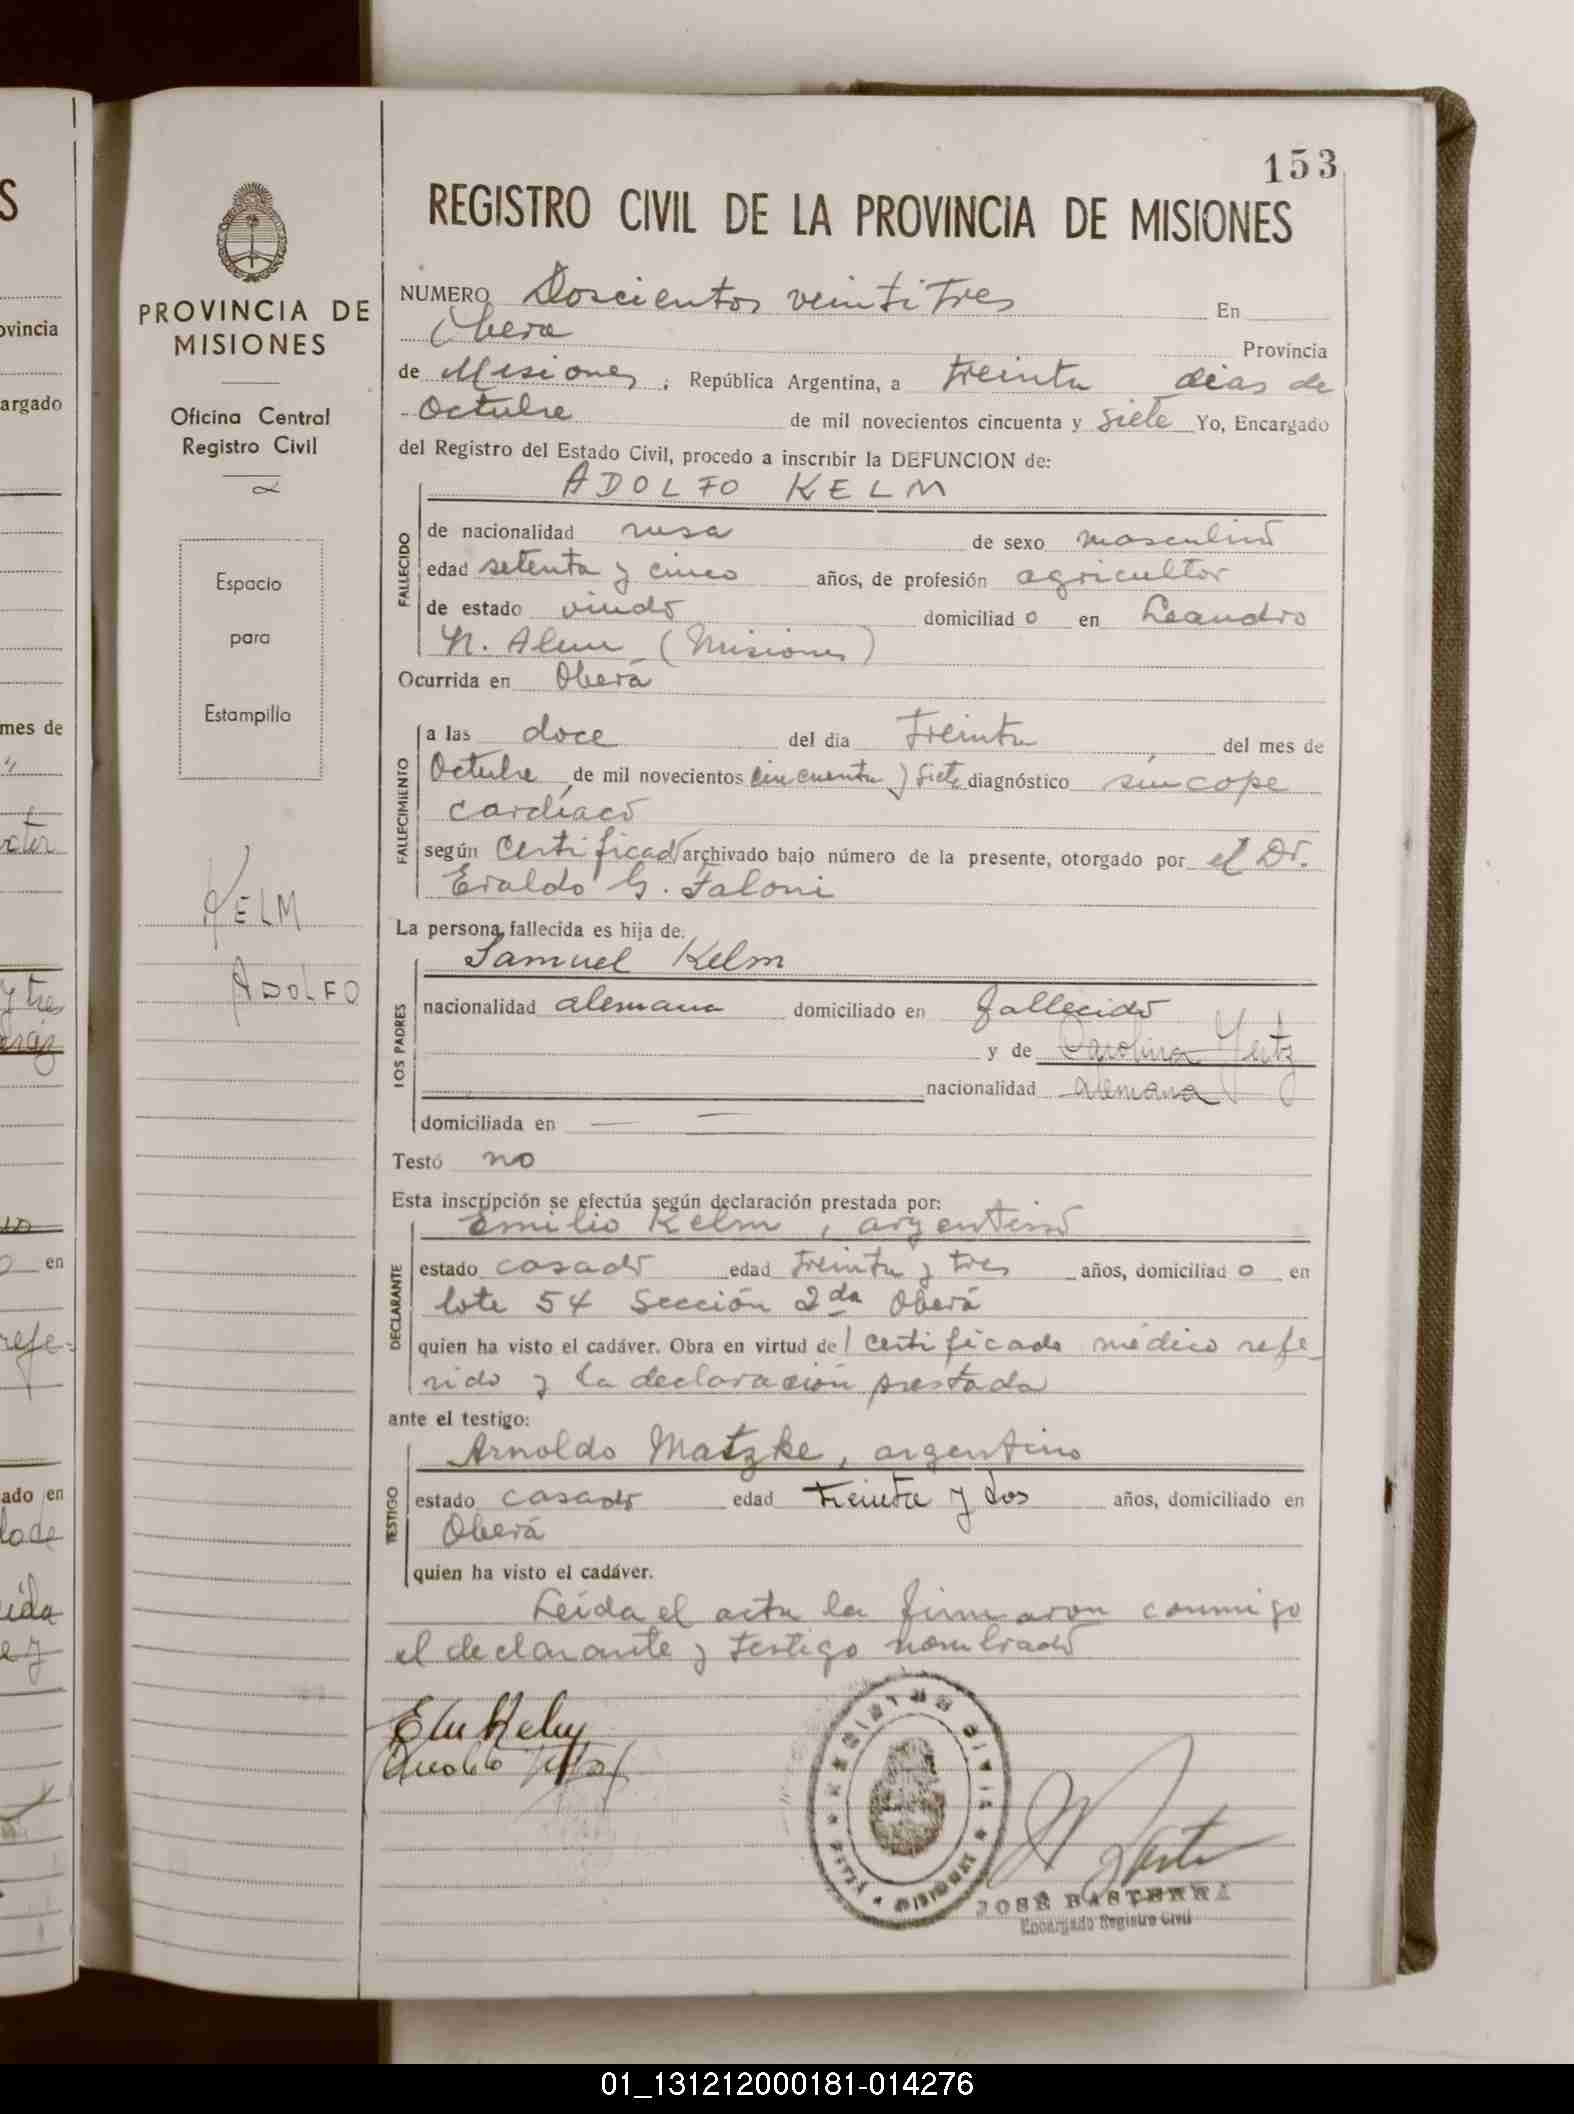 153
REGISTRO CIVIL DE LA PROVINCIA DE MISIONES
PROVINCIA DE
MISIONES
Oficina Central
Registro Civil
Espacio
para
Estampilla
KELM
ADOLFO
NUMERO Doscientos veintitres En
Obera Provincia
de Misiones, República Argentina, a treinta dias de
Octubre de mil novecientos cincuenta y siete Yo, Encargado
del Registro del Estado Civil, procedo a inscribir la DEFUNCION de:
ADOLFO KELM
FALLECIDO
de nacionalidad rusa de sexo masculino
edad setenta y cinco años, de profesión agricultor
de estado viudo domiciliad o en Leandro
N. Alem (Misiones)
Ocurrida en Oberá
FALLECIMIENTO
a las doce del dia treinta del mes de
Octubre de mil novecientos cincuenta y siete diagnóstico síncope
cardíaco
según certificado archivado bajo número de la presente, otorgado por el Dr.
Eraldo G. Faloni
La persona fallecida es hija de:
Samuel Kelm
LOS PADRES
nacionalidad alemana domiciliado en fallecido
y de Carolina
nacionalidad alemana
domiciliada en —
Testó no
Esta inscripción se efectúa según declaración prestada por:
Emilio Kelm, argentino
DECLARANTE
estado casado edad treinta y tres años, domiciliad o en
lote 54 Sección 2da Oberá
quien ha visto el cadáver. Obra en virtud del certificado médico refe-
rido y la declaración prestada
ante el testigo:
Arnoldo Matzke, argentino
TESTIGO
estado casado edad treinta y dos años, domiciliado en
Oberá
quien ha visto el cadáver.
Leída el acta la firmaron conmigo
el declarante y testigo nombrado
REGISTRO CIVIL
MISIONES
JOSÉ BASTERRA
Encargado Registro Civil
ovincia
argado
mes de
en
refe-
ado en
01_131212000181-014276